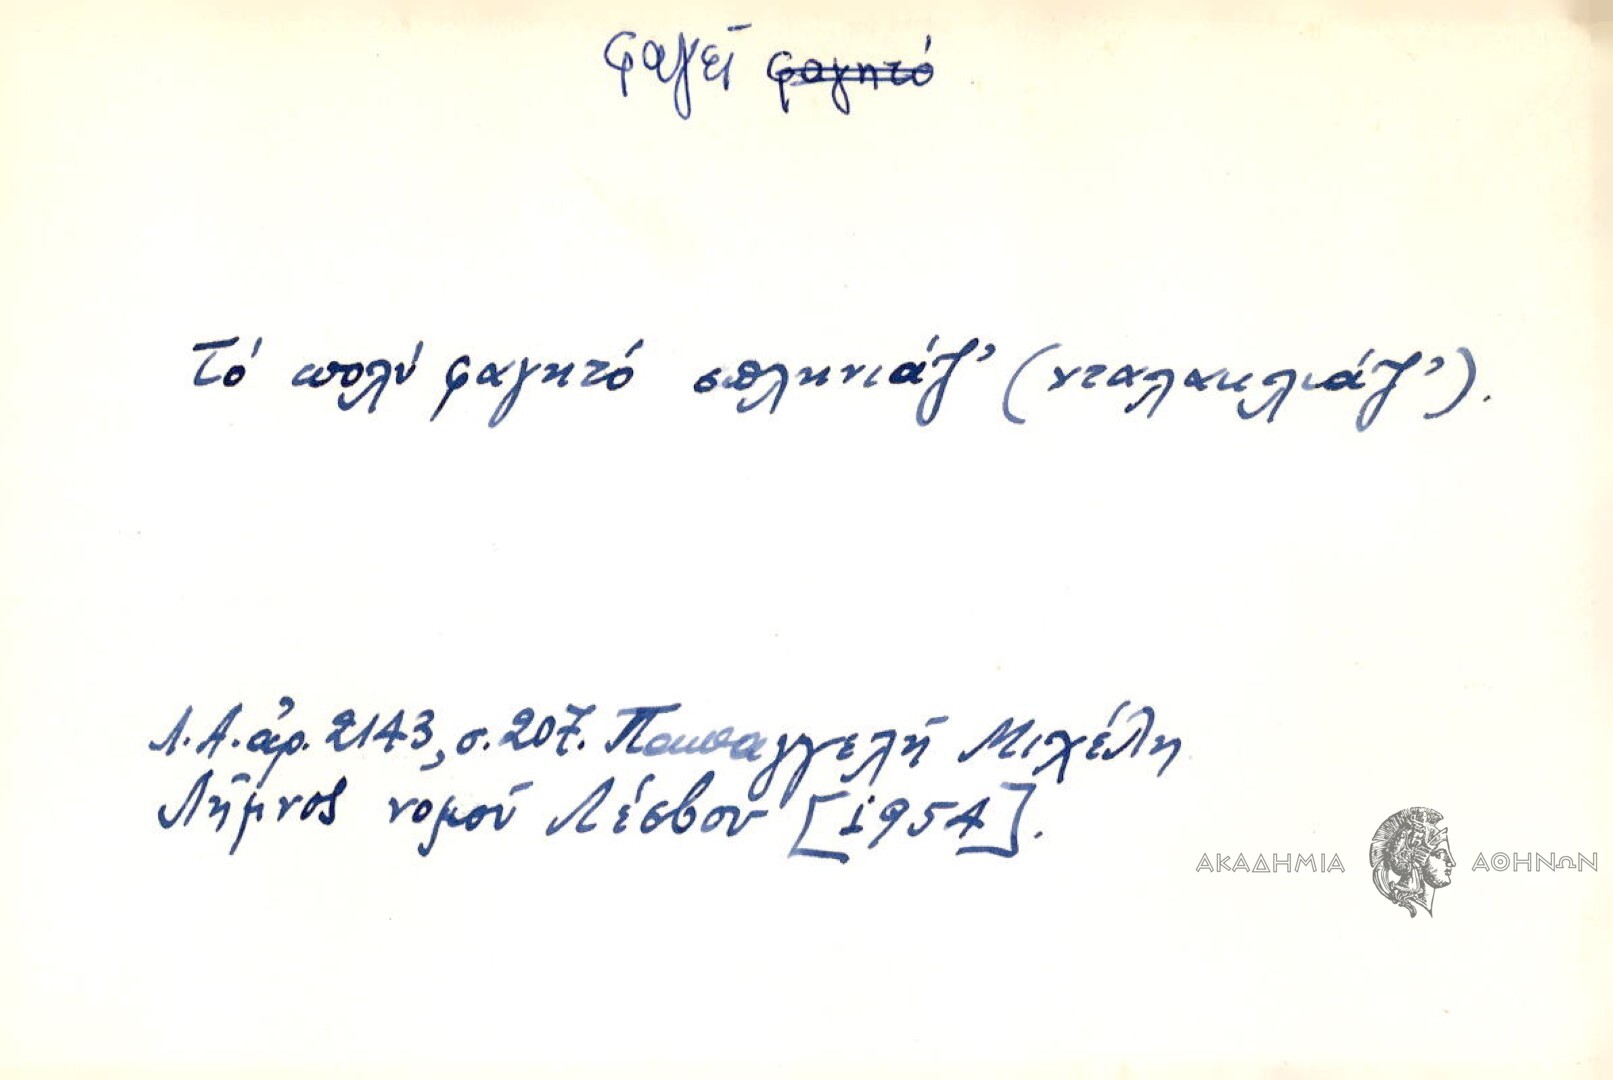 φαγεῖ φαγητό
Τό πολύ φαγητό σπληνιάζ' (νταλακλιάζ').
Λ.Α. ἀρ. 2143, σ. 207. Παπαγγελή Μιχέλη
Λῆμνος νομοῦ Λέσβου [1954].
ΑΚΑΔΗΜΙΑ ΑΘΗΝΩΝ